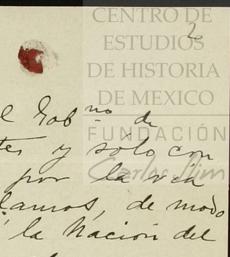 CENTRO DE
ESTUDIOS
DE HISTORIA
DE MEXICO
FUNDACIÓN
Carlos Slim
2
el Gobno de
tes y solo con
por la via
llamos, de modo
á la Nación del